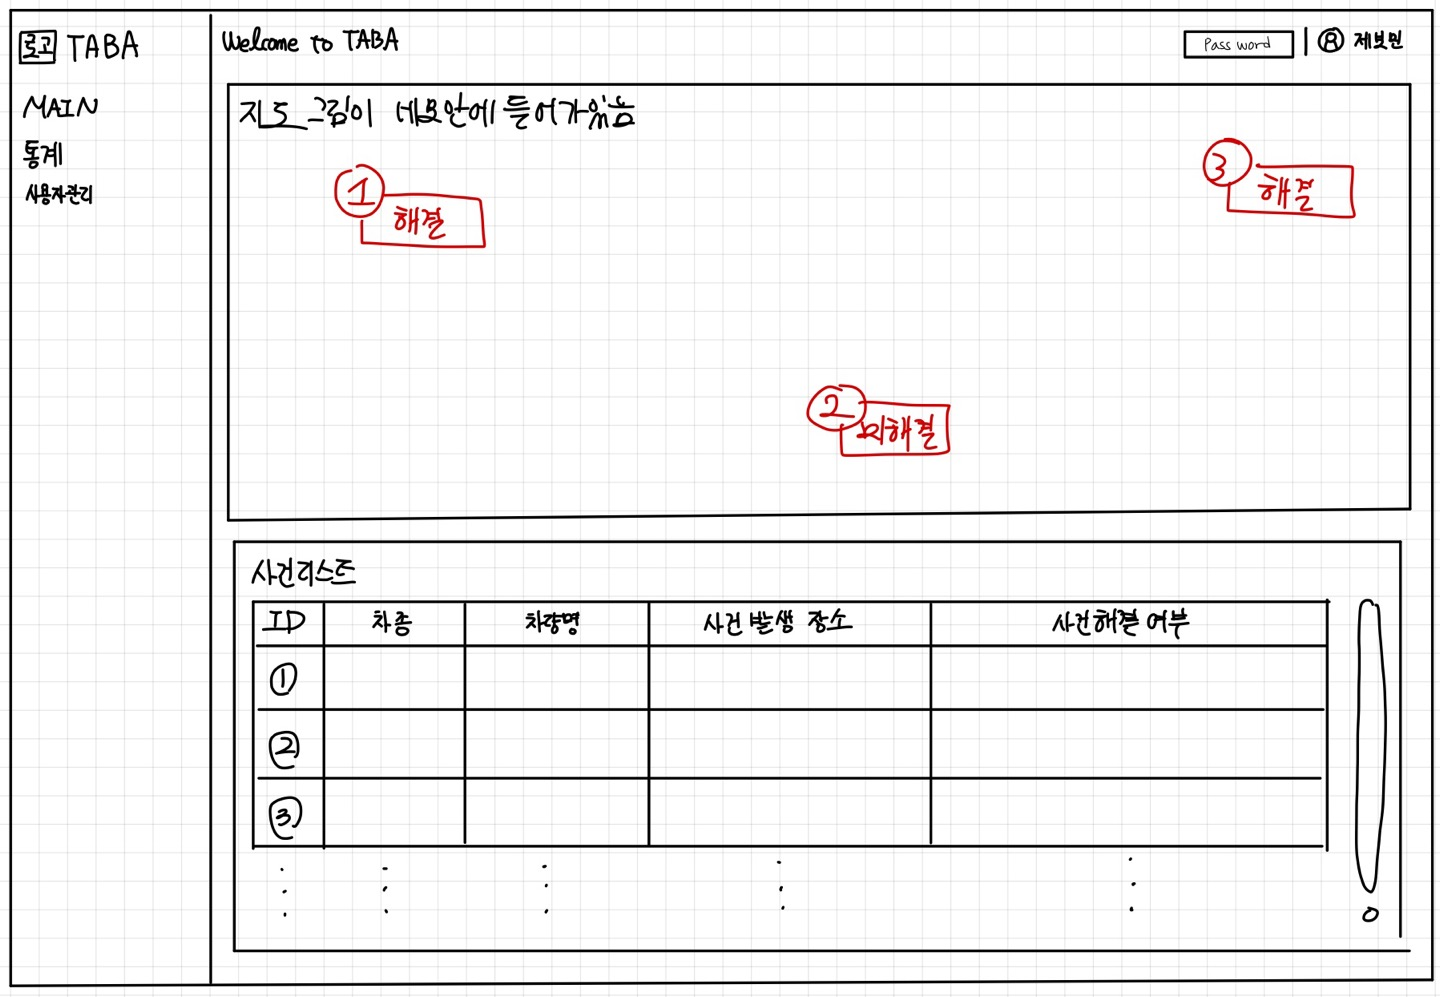 로고 TABA
MAIN
통계
사용자관리
Welcome to TABA
Pass word
제보민
지도 그림이 네모안에 들어가있음
1 해결
3 해결
2 미해결
사건리스트
ID 차종 차량명 사건 발생 장소 사건해결 여부
1
2
3